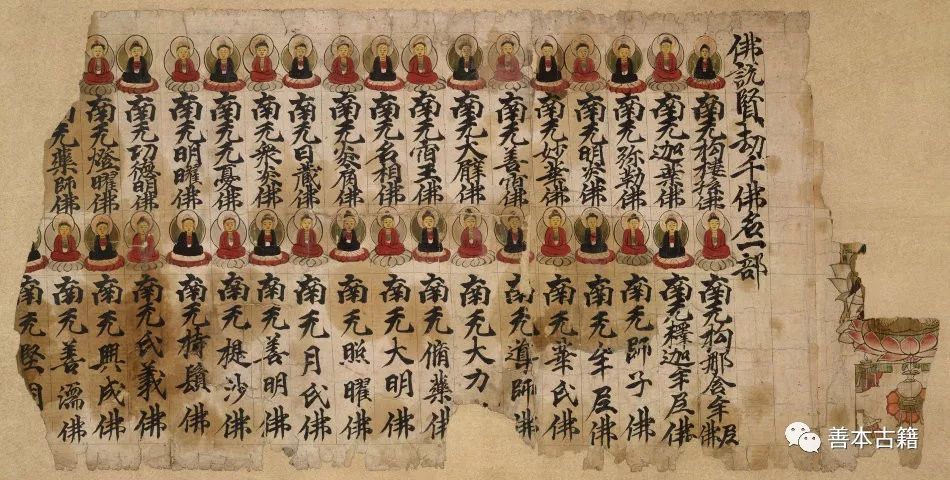 佛說賢劫千佛名一部
南无拘樓孫佛
南无迦葉佛
南无弥勒佛
南无明炎佛
南无妙華佛
南无善宿佛
南无大臂佛
南无宿王佛
南无名相佛
南无炎肩佛
南无日藏佛
南无衆炎佛
南无无憂佛
南无明曜佛
南无功德明佛
南无燈曜佛
南无藥師佛
南无拘那含牟尼佛
南无釋迦牟尼佛
南无師子佛
南无牟尼佛
南无華氏佛
南无導師佛
南无大力
南无脩藥佛
南无大明佛
南无照曜佛
南无月氏佛
南无善明佛
南无提沙佛
南无持鬘佛
南无氏義佛
南无興成佛
南无善濡佛
南无堅
善本古籍